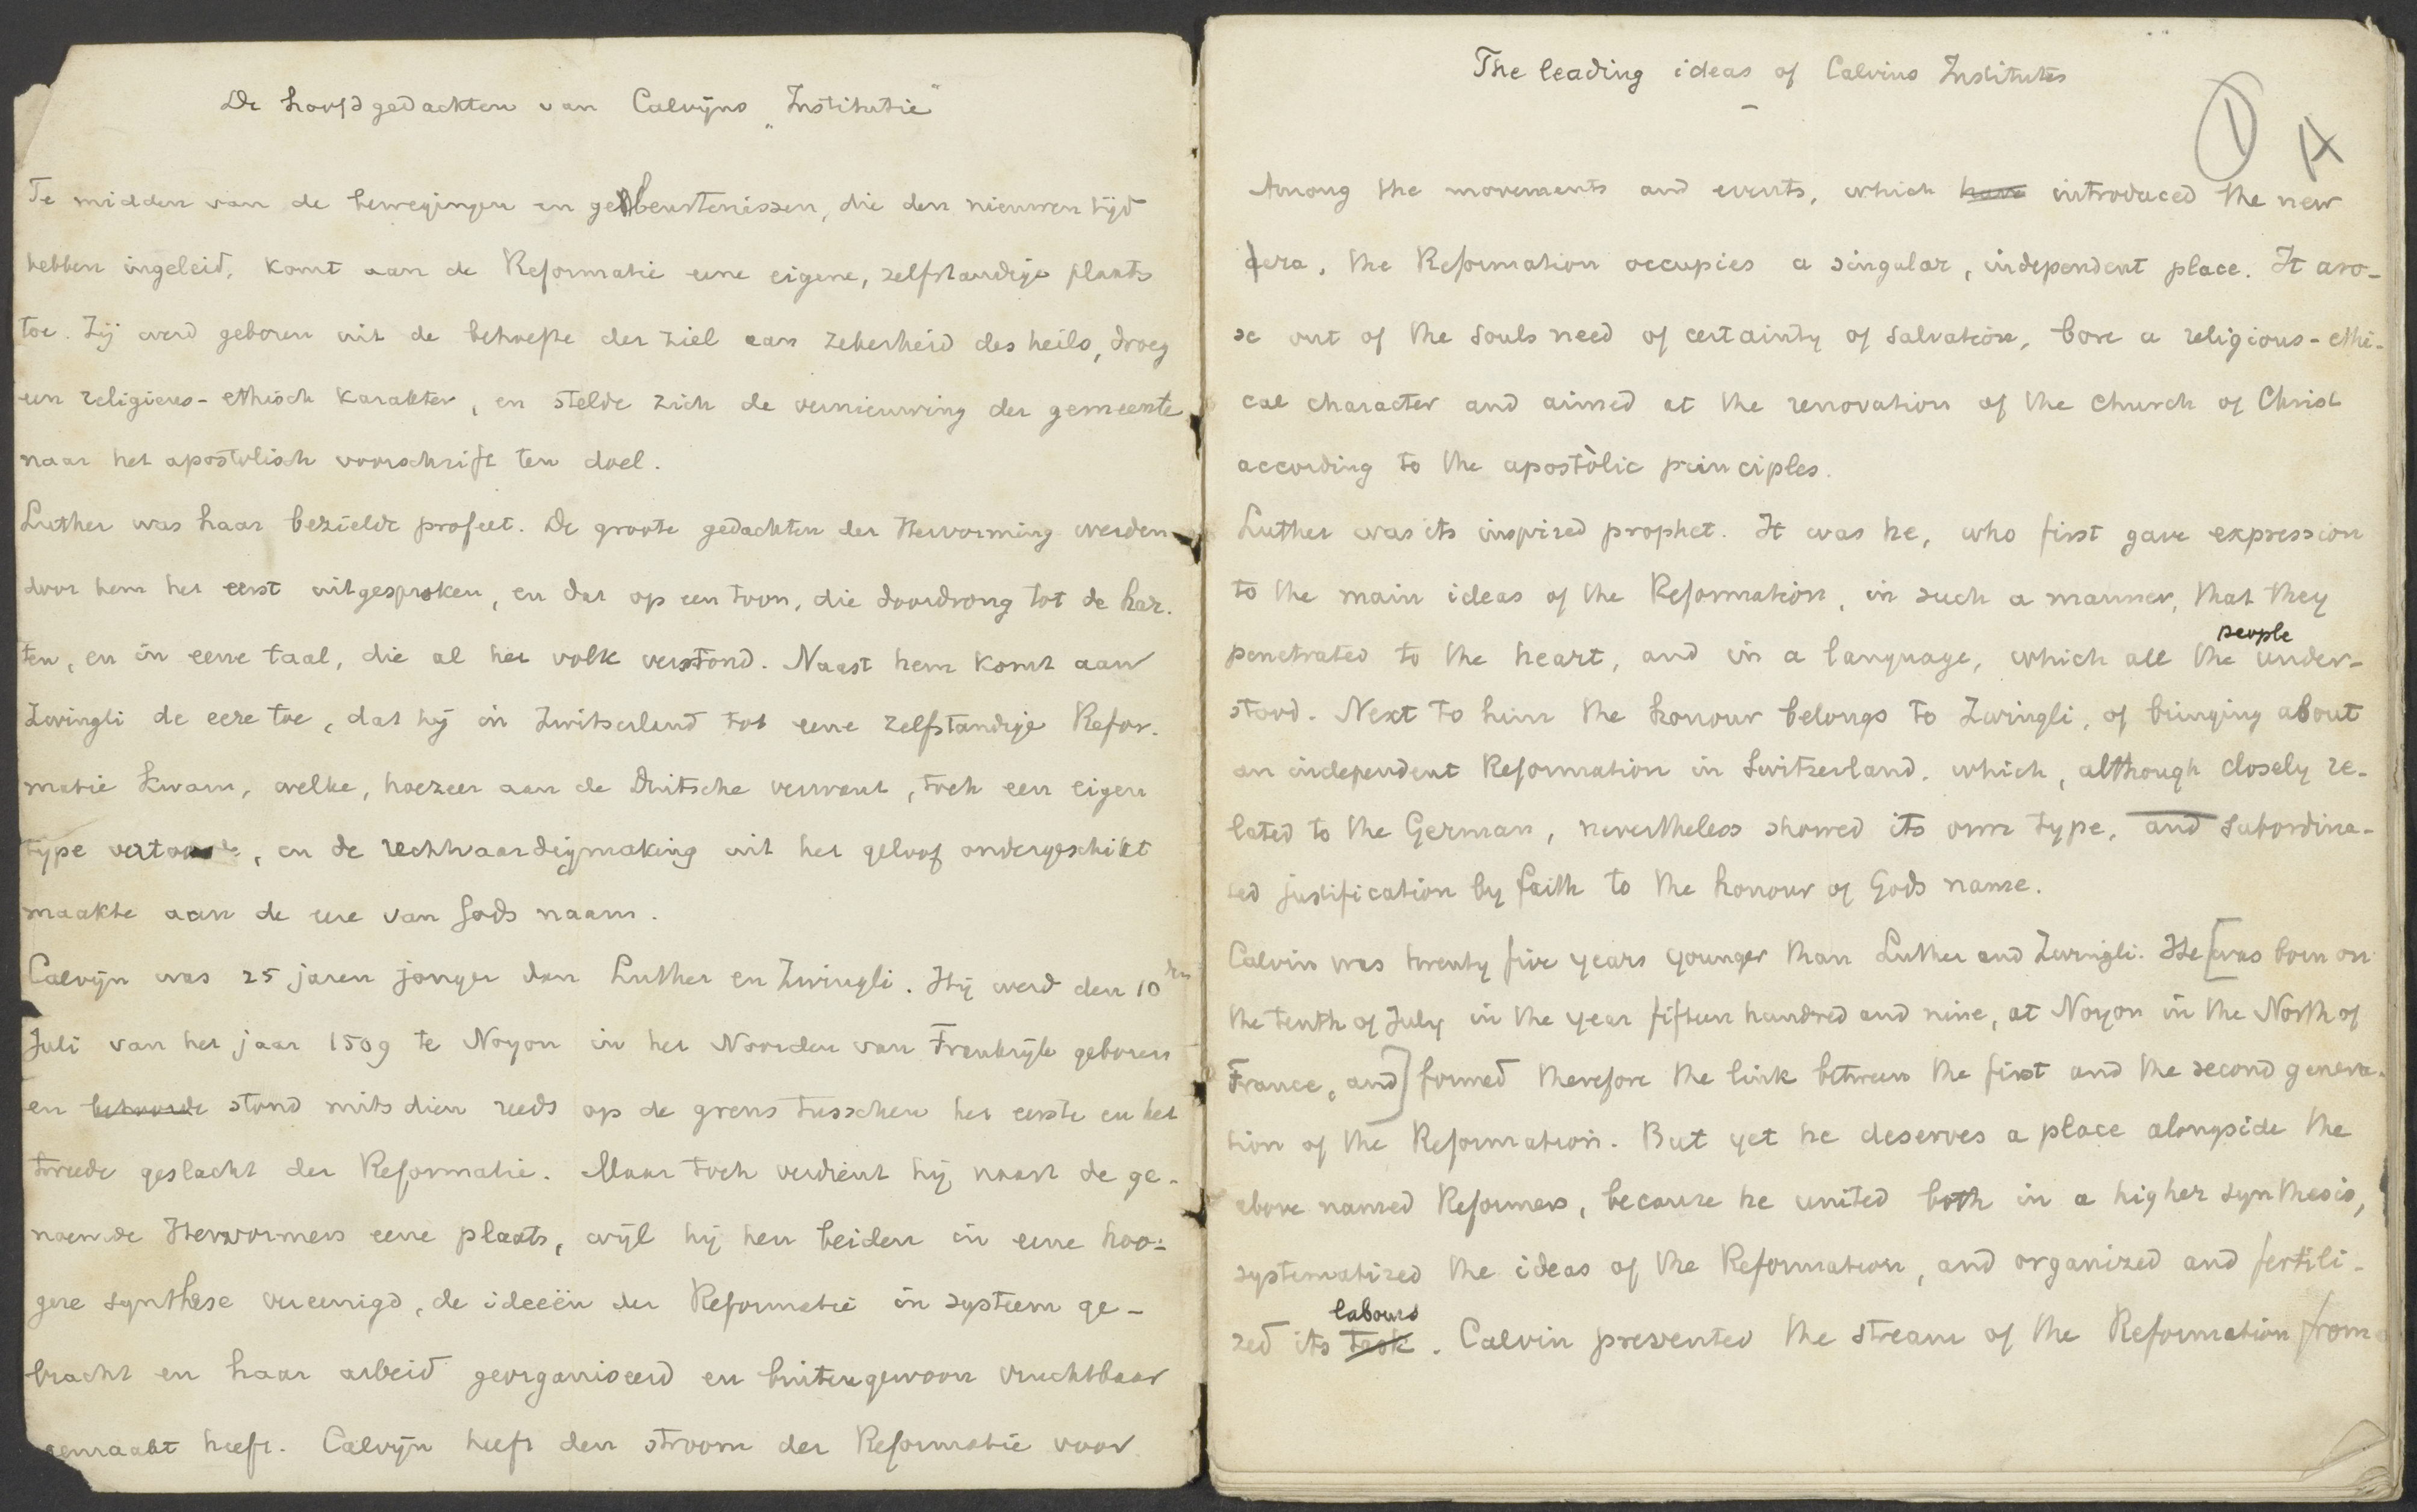 De hoofdgedachten van Calvijns „Institutie"
Te midden van de bewegingen en gebeurtenissen, die den nieuwen tijd
hebben ingeleid, komt aan de Reformatie eene eigene, zelfstandige plaats
toe. Zij werd geboren uit de behoefte der ziel aan zekerheid des heils, droeg
een religieus-ethisch karakter, en stelde zich de vernieuwing der gemeente
naar het apostolisch voorschrift ten doel.
Luther was haar bezielde profeet. De groote gedachten der Hervorming werden
door hem het eerst uitgesproken, en dat op een toon, die doordrong tot de har-
ten, en in eene taal, die al het volk verstond. Naast hem komt aan
Zwingli de eere toe, dat hij in Zwitserland tot eene zelfstandige Refor-
matie kwam, welke, hoezeer aan de Duitsche verwant, toch een eigen
type vertoonde, en de rechtvaardigmaking uit het geloof ondergeschikt
maakte aan de eere van Gods naam.
Calvijn was 25 jaren jonger dan Luther en Zwingli. Hij werd den 10den
Juli van het jaar 1509 te Noyon in het Noorden van Frankrijk geboren
en behoorde stond mitsdien reeds op de grens tusschen het eerste en het
tweede geslacht der Reformatie. Maar toch verdient hij naast de ge-
noemde Hervormers eene plaats, wijl hij hen beiden in eene hoo-
gere synthese vereenigd, de ideeën der Reformatie in systeem ge-
bracht en haar arbeid georganiseerd en buitengewoon vruchtbaar
gemaakt heeft. Calvijn heeft den stroom der Reformatie voor
The leading ideas of Calvins Institutes
1 A
Among the movements and events, which have introduced the new
era, the Reformation occupies a singular, independent place. It aro-
se out of the souls need of certainty of salvation, bore a religious-ethi-
cal character and aimed at the renovation of the Church of Christ
according to the apostolic principles.
Luther was its inspired prophet. It was he, who first gave expression
to the main ideas of the Reformation, in such a manner, that they
penetrated to the heart, and in a language, which all the people under-
stood. Next to him the honour belongs to Zwingli, of bringing about
an independent Reformation in Switzerland, which, although closely re-
lated to the German, nevertheless showed its own type, and subordina-
ted justification by faith to the honour of Gods name.
Calvin was twenty five years younger than Luther and Zwingli. He [was born on
the tenth of July in the year fifteen hundred and nine, at Noyon in the North of
France, and] formed therefore the link between the first and the second genera-
tion of the Reformation. But yet he deserves a place alongside the
above named Reformers, because he united both in a higher synthesis,
systematized the ideas of the Reformation, and organized and fertili-
zed its task labours. Calvin presented the stream of the Reformation from